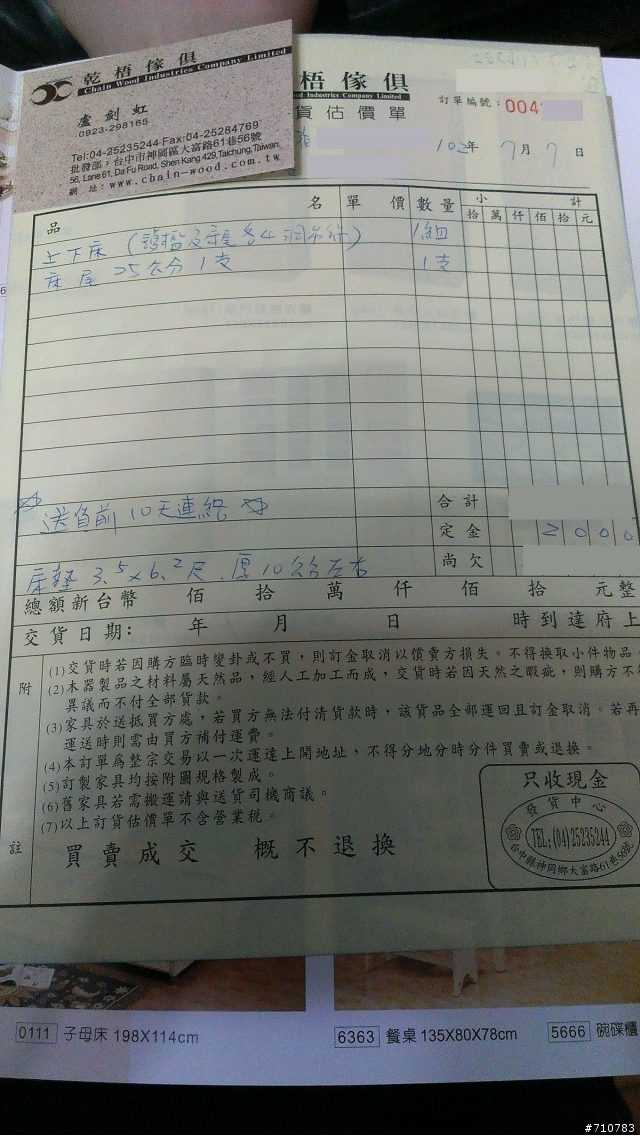 乾梧傢俱
Chain Wood Industries Company Limited
盧劍虹
0923-298165
Tel:04-25235244 Fax:04-25284769
批發部：台中市神岡區大富路61巷56號
56, Lane 61, Da Fu Road, Shen Kang 429, Taichung, Taiwan.
網址：www.chain-wood.com.tw
梧傢俱
Industries Company Limited
貨估價單
訂單編號：004
102年 7月 7日
品名 單價 數量 小計
拾 萬 仟 佰 拾 元
上下床 1組
床尾 25公分 1支 1支
送貨前10天連絡
合計
定金 2000
尚欠
床墊 3.5×6.2尺．厚10公分左右
總額新台幣 佰 拾 萬 仟 佰 拾 元整
交貨日期： 年 月 日 時到達府上
附註
(1)交貨時若因購方臨時變卦或不買，則訂金取消以償賣方損失。不得換取小件物品。
(2)木器製品之材料屬天然品，經人工加工而成，交貨時若因天然之瑕疵，則購方不得
異議而不付全部貨款。
(3)家具於送抵買方處，若買方無法付清貨款時，該貨品全部運回且訂金取消。若再
運送時則需由買方補付運費。
(4)本訂單為整宗交易以一次運達上開地址，不得分地分時分件買賣或退換。
(5)訂製家具均按附圖規格製成。
(6)舊家具若需搬運請與送貨司機商議。
(7)以上訂貨估價單不含營業稅。
買賣成交 概不退換
只收現金
發貨中心
TEL:(04)25235244
台中縣神岡鄉大富路61巷56號
0111 子母床 198X114cm
6363 餐桌 135X80X78cm
5666 碗碟櫃
#710783